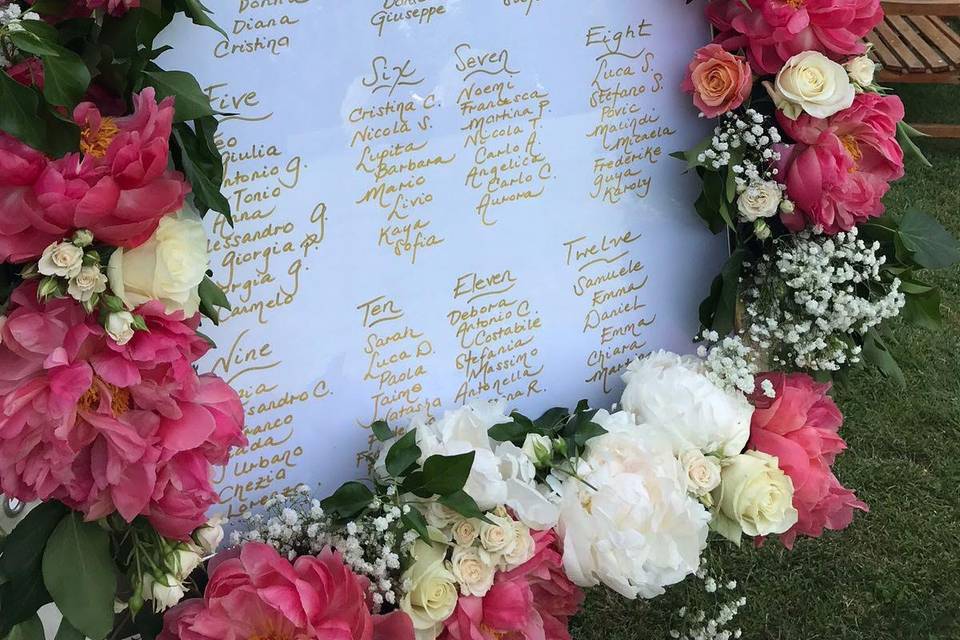 Donna
Diana
Cristina
Giuseppe
Five
Leo
Giulia
Antonio g.
Tonio
Anna
Alessandro g.
Giorgia p.
Giorgia g.
Carmelo
Six
Cristina C.
Nicola S.
Lupita
Barbara
Mario
Livio
Kaya
Sofia
Seven
Noemi
Francesca
Martina P.
Nicola T.
Carlo A.
Angelica
Carlo C.
Aurora
Eight
Luca S.
Stefano S.
Povic
Malindi
Micaela
Frederike
Guya
Karoly
Nine
Alessandro C.
Franco
Urbano
Chezia
Lorenzo
Ten
Sarah
Luca D.
Paola
Jaime
Natasha
Eleven
Debora
Antonio C.
Costabile
Stefania
Massimo
Antonella
R.
Twelve
Samuele
Emma
Daniel
Emma
Chiara